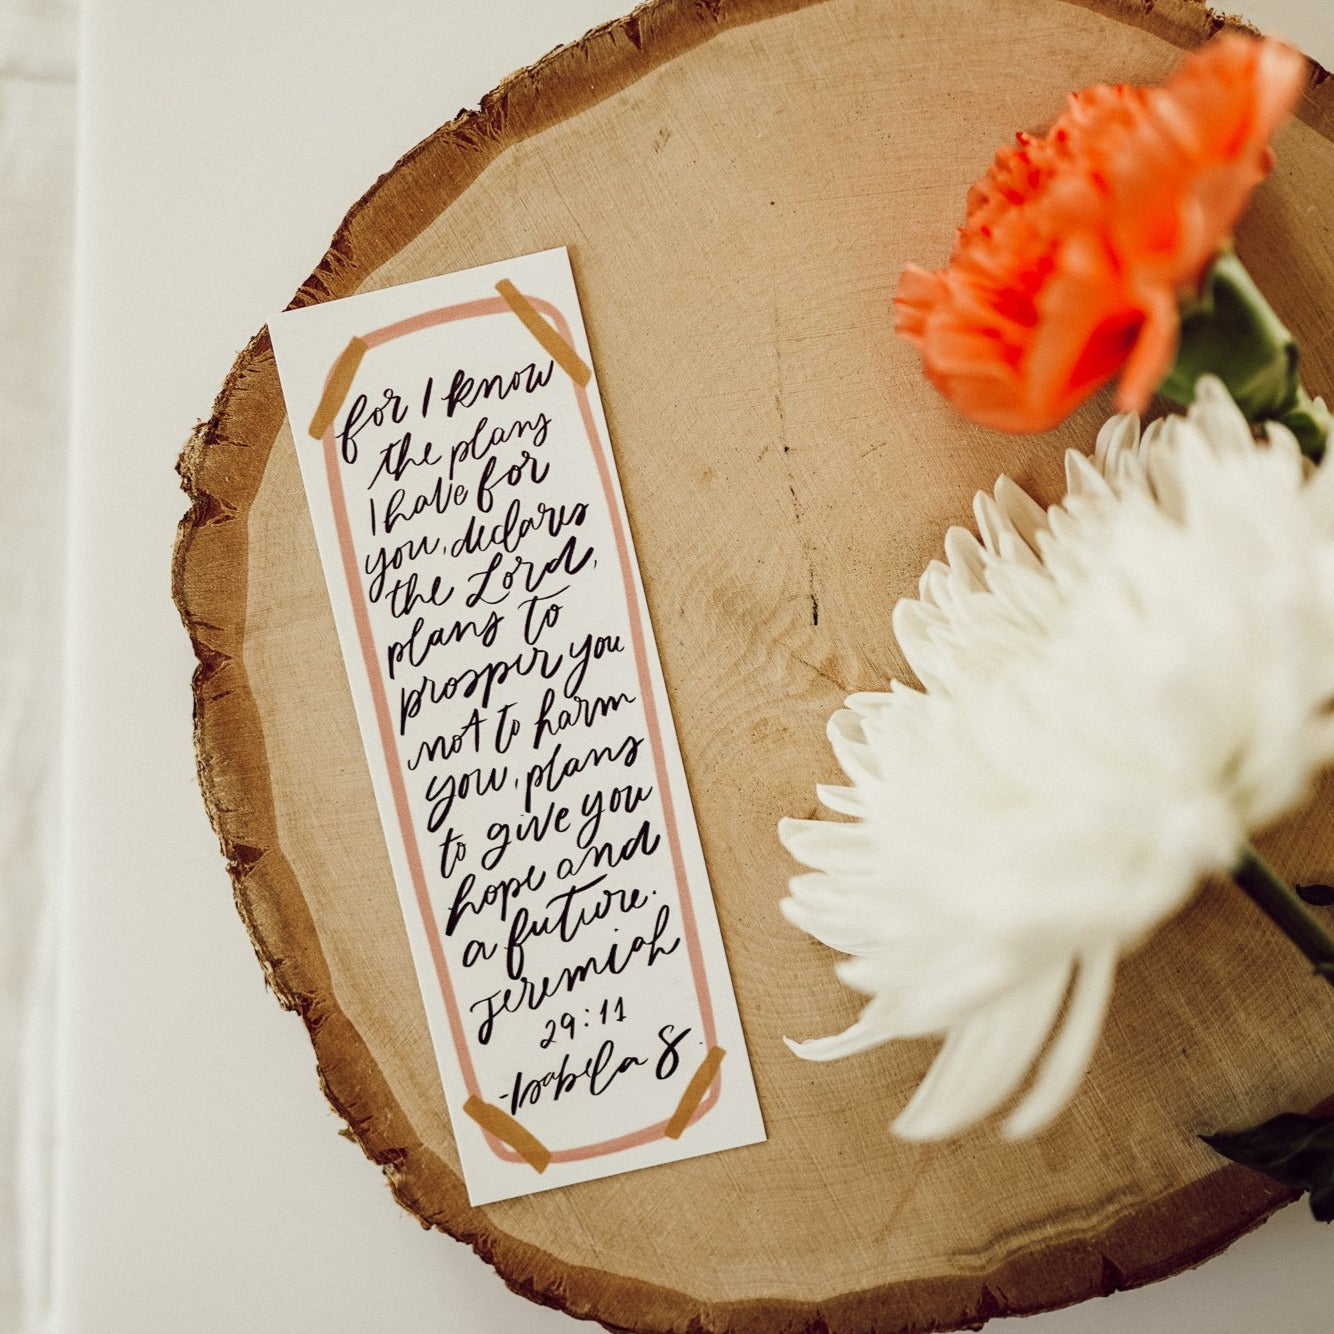 for I know
the plans
I have for
you, declares
the Lord,
plans to
prosper you
not to harm
you, plans
to give you
hope and
a future.
Jeremiah
29:11
-Isabela S.